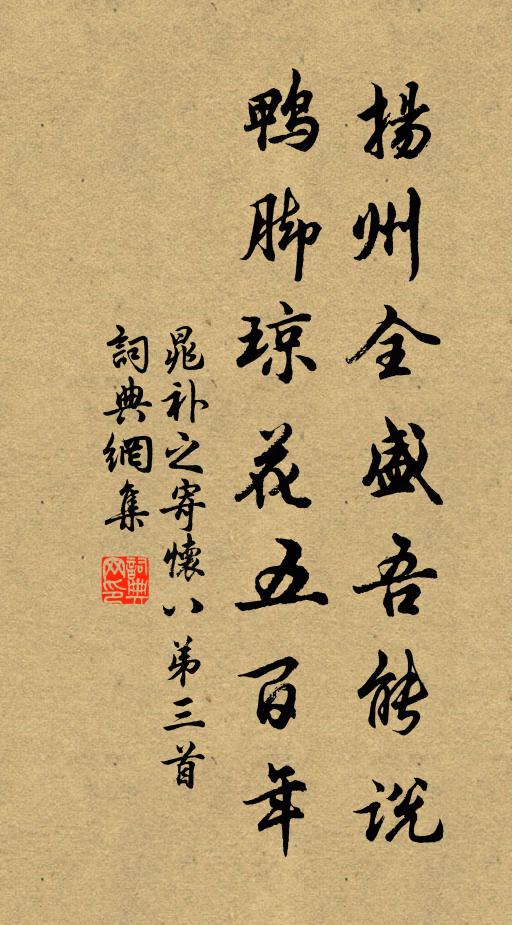 揚州全盛吾能說
鴨脚琼花五百年
晁补之寄懷八第三首
詞典網集
詞典网印